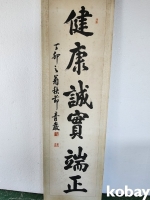 健康誠實端正
丁卯之菊秋節
kobay